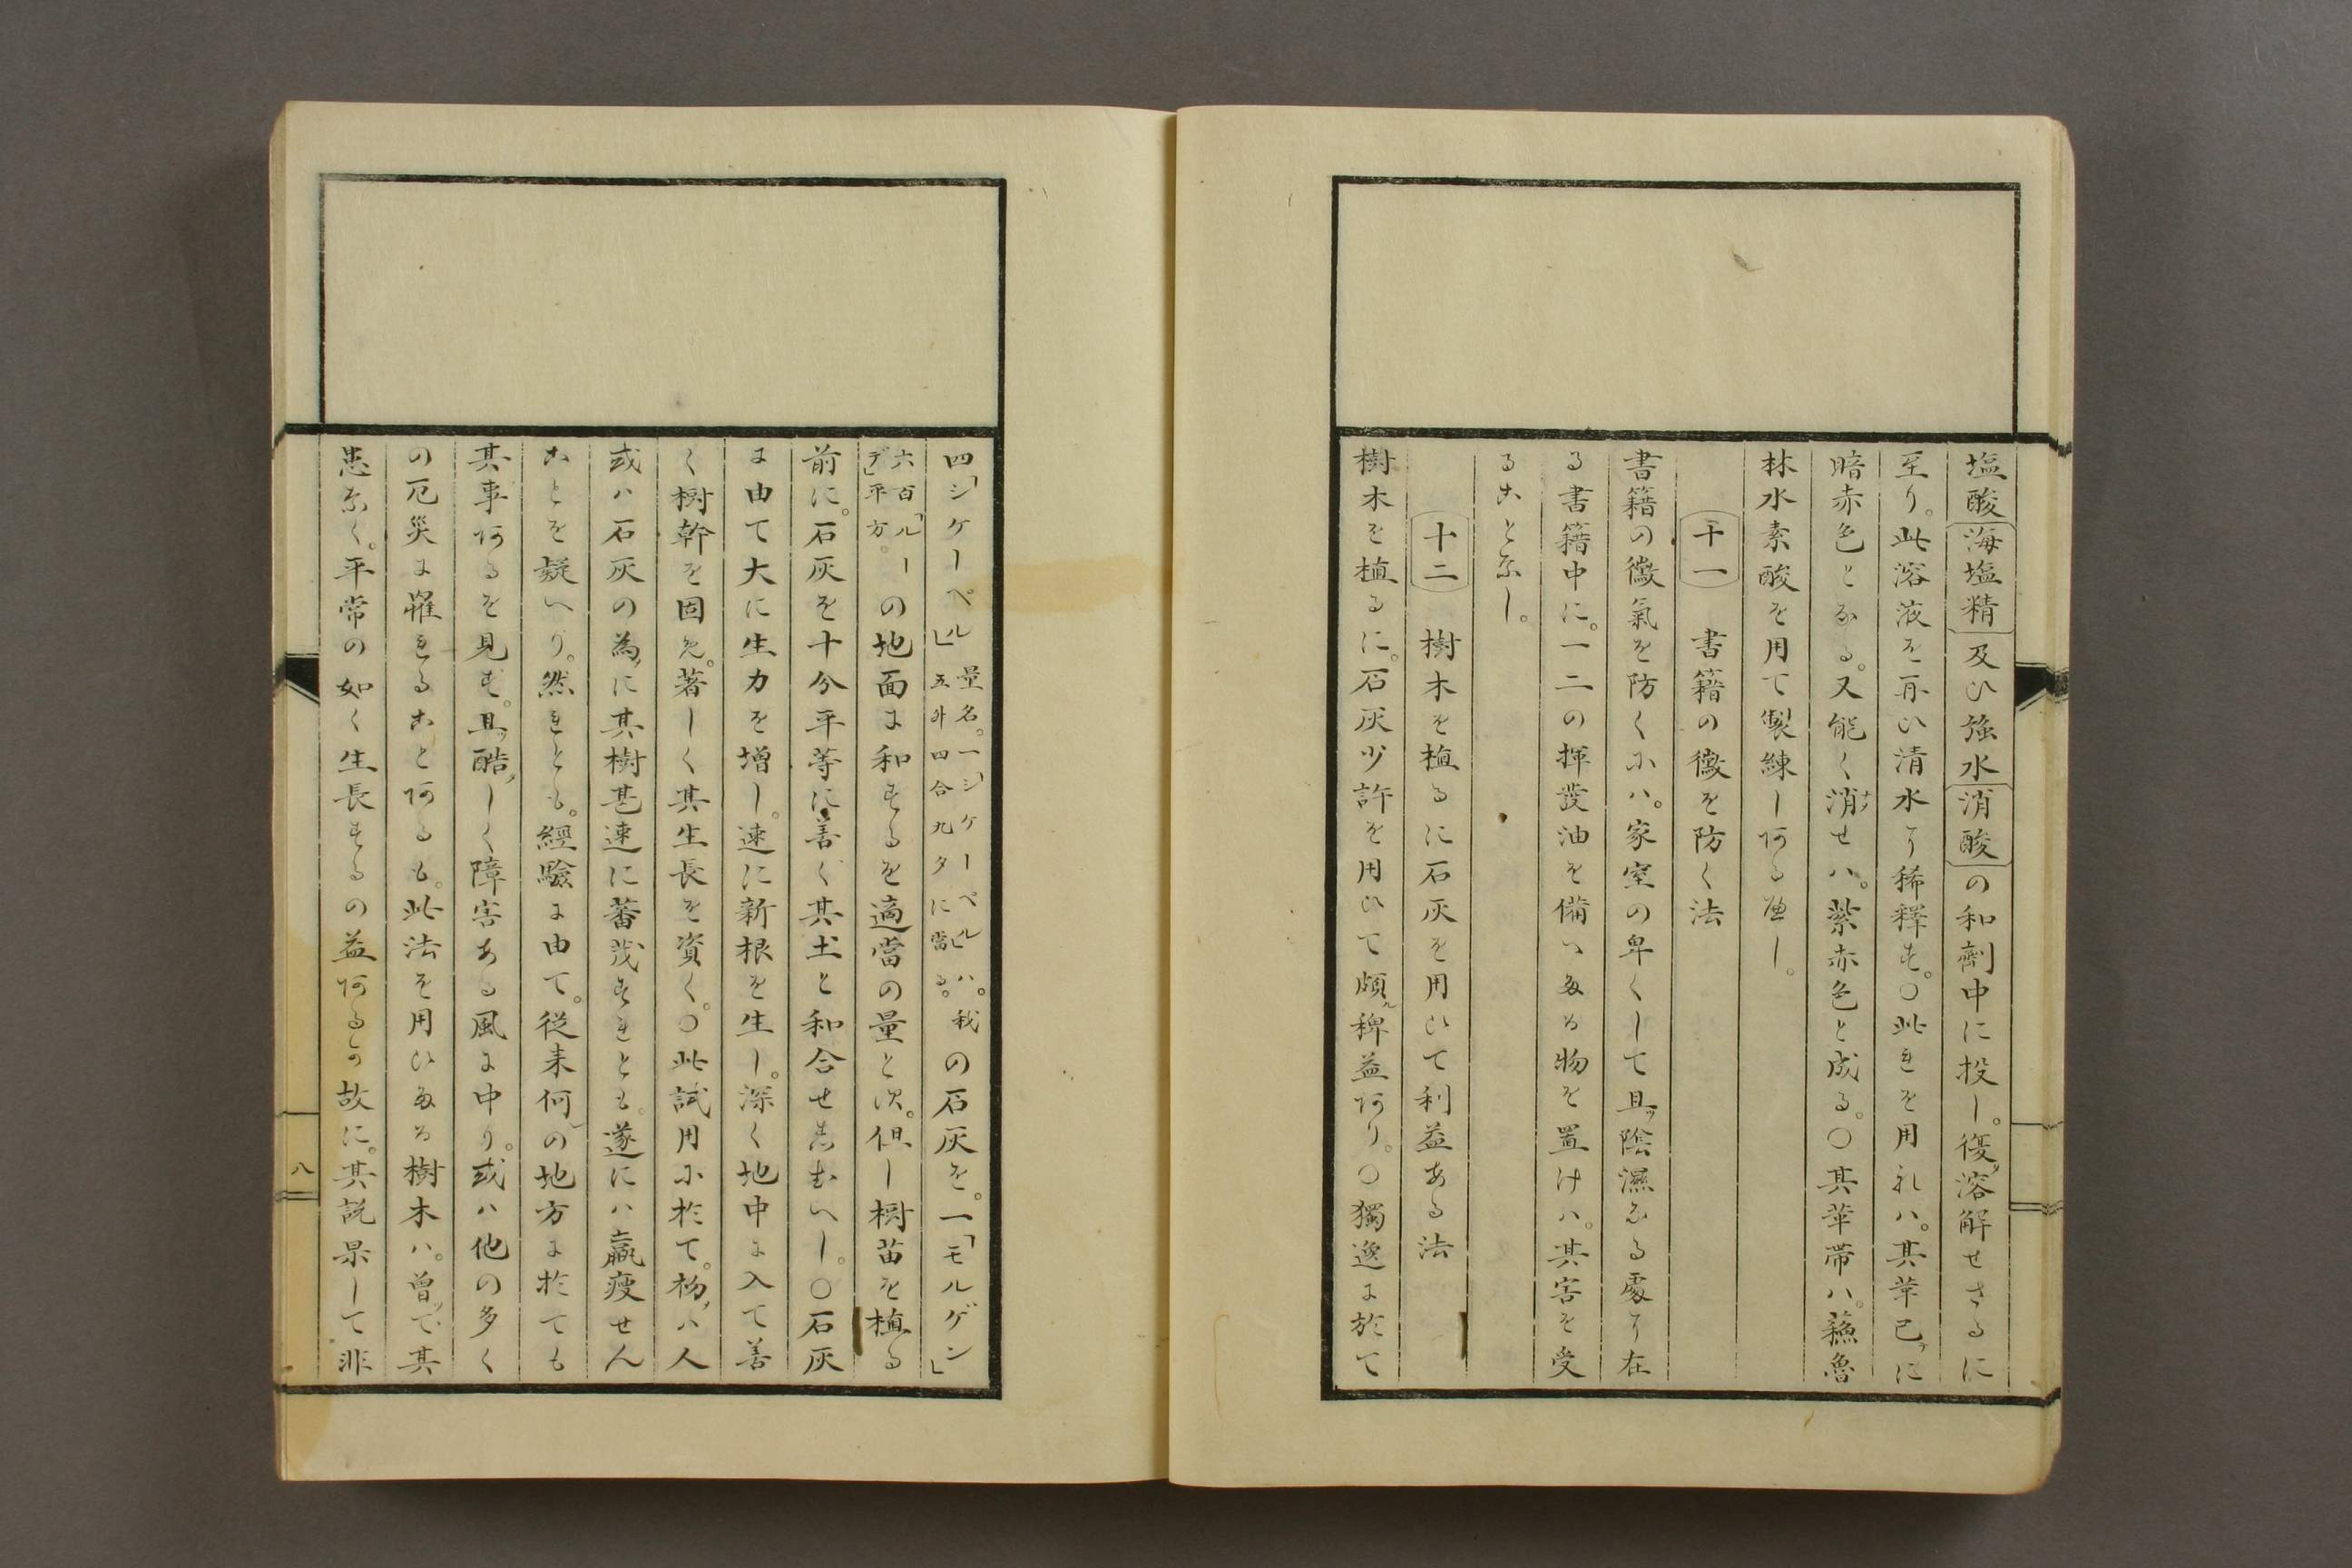 塩酸海塩精及ひ強水消酸の和劑中に投し。復ﾀ溶解せさるに
至り。此溶液を再ひ清水ニて稀釋す。〇此れを用れハ。其革已ﾃﾞに
暗赤色となる。又能く消ｻせハ。紫赤色と成る。〇其革帯ハ。蘓魯
林水素酸を用て製練しある歟し。
十一 書籍の黴を防く法
書籍の黴氣を防くにハ。家室の卑くして且ﾂ陰濕なる處ニ在
る書籍中に。一二の揮發油を備へたる物を置けハ。其害を受
ることなし。
十二 樹木を植るに石灰を用ひて利益ある法
樹木を植るに。石灰少許を用ひて頗ﾙ稗益あり。〇獨逸に於て
四「シケーペル」量名。一「シケーペル」ハ。我五舛四合九夕に當る。の石灰を。一「モルゲン」
六百「ルーデ」平方。ーの地面に和するを適當の量と次。但し樹苗を植る
前に。石灰を十分平等に善く其土と和合せしむへし。〇石灰
に由て大に生力を増し。速に新根を生し。深く地中に入て善
く樹幹を固め。著しく其生長を資く。〇此試用に於て。初ﾒハ人
或ハ石灰の為ﾒに其樹甚速に蕃茂すれとも。遂にハ羸瘦せん
ことを疑へり。然れとも。經驗に由て。従来何ﾚの地方に於ても
其事あるを見す。且ﾂ酷ﾀﾞしく障害ある風に中り。或ハ他の多く
の厄災に罹れることあるも。此法を用ひたる樹木ハ。曾ﾂて其
患なく。平常の如く生長するの益あるか故に。其説果して非
八